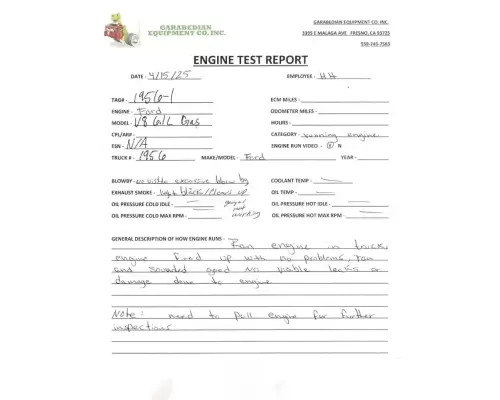 GARABEDIAN
EQUIPMENT CO, INC.
GARABEDIAN EQUIPMENT CO, INC.
3395 E MALAGA AVE FRESNO, CA 93725
ENGINE TEST REPORT
DATE - 4/15/25 EMPLOYEE - HH
TAG# - 1956-1 ECM MILES -
ENGINE - Ford ODOMETER MILES -
MODEL - V8 6.1L Gas HOURS -
CPL/AR# - CATEGORY - running engine
ESN - N/A ENGINE RUN VIDEO - Y N
TRUCK # - 1956 MAKE/MODEL - Ford YEAR -
BLOWBY - no visible excessive blow by COOLANT TEMP -
EXHAUST SMOKE - light black/ up OIL TEMP -
OIL PRESSURE COLD IDLE - OIL PRESSURE HOT IDLE -
OIL PRESSURE COLD MAX RPM - OIL PRESSURE HOT MAX RPM -
not
working
GENERAL DESCRIPTION OF HOW ENGINE RUNS - Ran engine in truck
engine fired up with no problems, ran
and sounded good No visible leaks or
damage done to engine
Note: need to pull engine for further
inspections